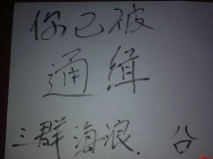 你已被
通缉
三群海浪.